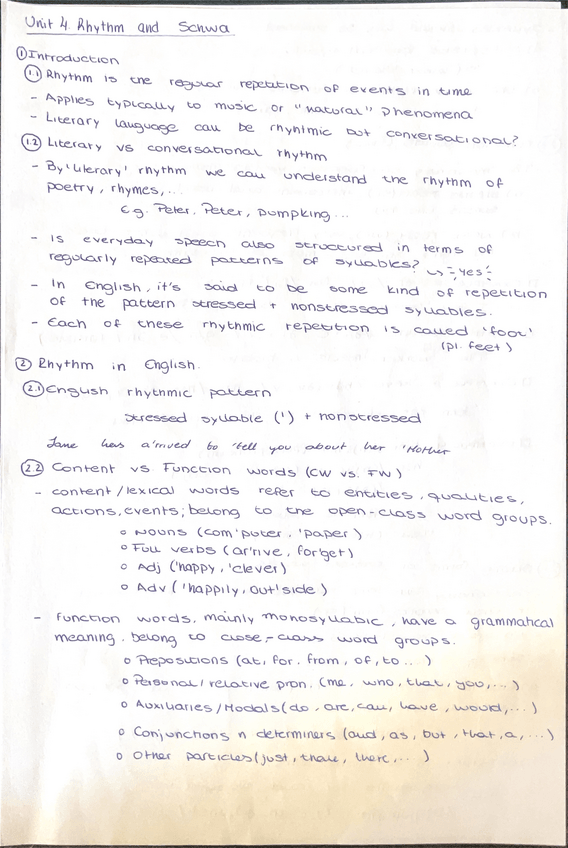 Unit 4. Rhythm and Schwa
① Introduction
1.1 Rhythm is the regular repetition of events in time
- Applies typically to music or "natural" phenomena
- Literary language can be rhyhtmic but conversational?
1.2 Literary vs conversational rhythm
- By 'literary' rhythm we can understand the rhythm of
poetry, rhymes,...
E.g. Peter, Peter, pumpking...
- Is everyday speech also structured in terms of
regularly repeated patterns of syllables? ↳ yes
- In English, it's said to be some kind of repetition
of the pattern stressed + nonstressed syllables.
- Each of these rhythmic repetition is called 'foot'
(pl. feet)
② Rhythm in English.
2.1 English rhythmic pattern
stressed syllable (') + nonstressed
Jane has a'rrived to 'tell you about her 'Mother
2.2 Content vs Function words (CW vs. FW)
- content/lexical words refer to entities, qualities,
actions, events; belong to the open-class word groups.
o Nouns (com'puter, 'paper)
o Full verbs (ar'rive, for'get)
o Adj ('happy, 'clever)
o Adv ('happily, out'side)
- Function words, mainly monosyllabic, have a grammatical
meaning. belong to close-class word groups.
o Prepositions (at, for, from, of, to...)
o Personal/relative pron. (me, who, that, you,...)
o Auxiliaries/Modals (do, are, can, have, would,...)
o Conjunctions n determiners (and, as, but, that, a,...)
o Other particles (just, than, there,...)